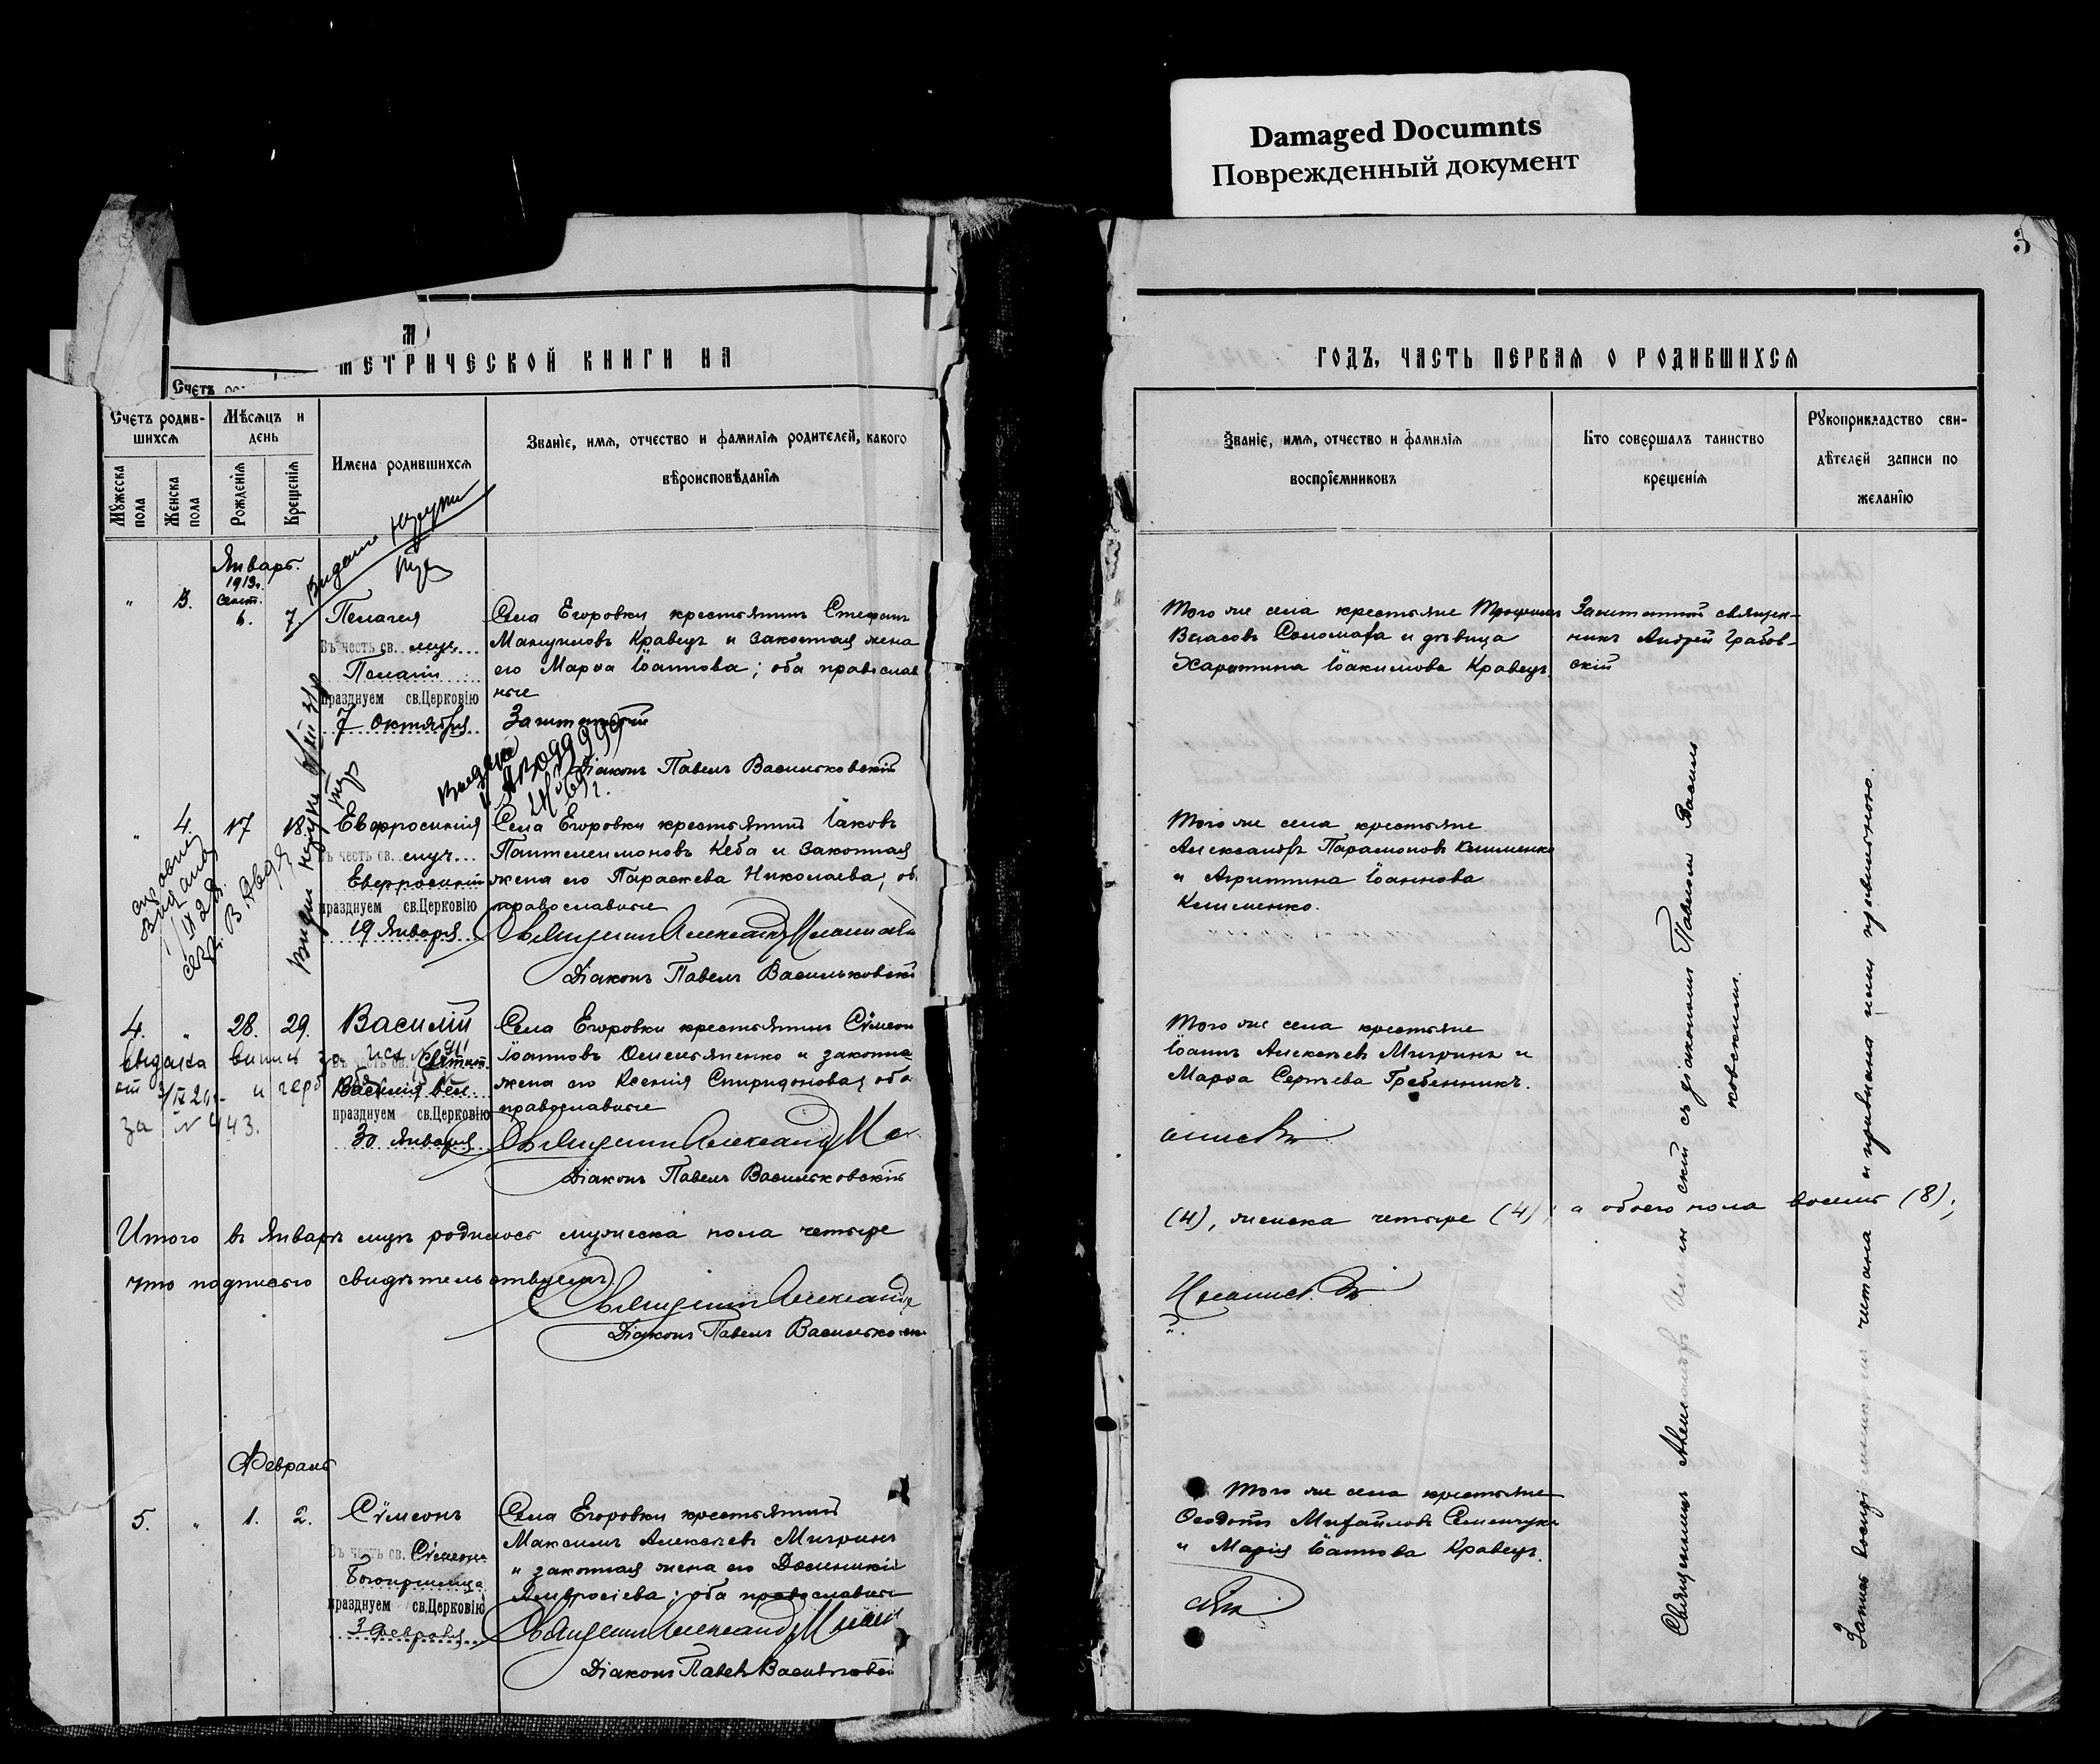 Damaged Documnts
Поврежденный документ
3
М
МЕТРИЧЕСКОЙ КНИГИ НА
Счетъ
ГОДЪ, ЧАСТЬ ПЕРВАЯ О РОДИВШИХСЯ
Счетъ родив-
шихся
Мѣсяцъ и
день
Мужеска
пола
Женска
пола
Рожденія
Крещенія
Имена родившихся
Званіе, имя, отчество и фамилія родителей, какого
вѣроисповѣданія
Званіе, имя, отчество и фамилія
воспріемниковъ
Кто совершалъ таинство
крещенія
Рукоприкладство сви-
дѣтелей записи по
желанію
Январь.
1913г.
Сент.
" 3. 6. 7. Пелагея
въ честь св. муч.
Пелагіи
празднуем св.Церковію
7 Октября
Села Егоровки крестьянинъ Стефанъ
Мануиловъ Кравецъ и законная жена
его Марѳа Іоаннова; оба православ
ные
Заштатный
Діаконъ Павелъ Васильковскій
Того же села крестьяне Трофимъ
Власовъ Соломаха и дѣвица
Харитина Іакимова Кравецъ.
Заштатный священ-
никъ Андрей Грабов-
скій
" 4. 17 18. Евфросинія
въ честь св. муч.
Евфросиніи
празднуем св.Церковію
19 Января
Села Егоровки крестьянинъ Іаковъ
Пантелеимоновъ Кеба и законная
жена его Параскева Николаева; об
православные
Священникъ Александръ
Діаконъ Павелъ Васильковскі
Того же села крестьяне
Александръ Парамоновъ Клименко
и Агриппина Іоаннова
Клименко.
4. " 28. 29. Василій
въ честь св. Святит.
Василія Вел.
празднуем св.Церковію
30 Января
выдана
за № 443.
Села Егоровки крестьянинъ Сѵмеон
Іоанновъ Омельяненко и законна
жена его Ксенія Спиридонова; оба
православные
Священникъ Александръ
Діаконъ Павелъ Васильковскій
Того же села крестьяне
Іоаннъ Алексѣевъ Мигринъ и
Марѳа Сергѣева Гребенникъ.
Итого въ Январѣ мцѣ родилось мужеска пола четыре
(4), женска четыре (4); а обоего пола восемь (8);
что подписью свидѣтельствуемъ.
Священникъ Александръ
Діаконъ Павелъ Васильков
Февраль
5. " 1. 2. Сѵмеонъ
въ честь св. Сѵмеона
Богопріимца
празднуем св.Церковію
3 февраля
Села Егоровки крестьянинъ
Максимъ Алексѣевъ Мигринъ
и законная жена его Домникія
Амвросіева; оба православные
Священникъ Александръ
Діаконъ Павелъ Васильковскі
Того же села крестьяне
Ѳеодотъ Михаиловъ Семенчукъ
и Марія Іоаннова Кравецъ.
Священникъ Александръ скій съ діакономъ Павломъ Василь
ковскимъ.
читана и признана правильною.